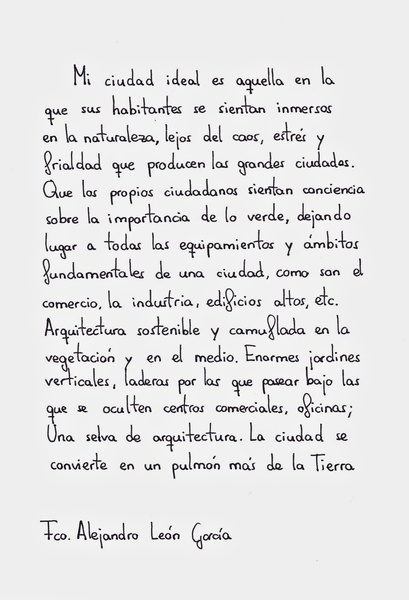 Mi ciudad ideal es aquella en la
que sus habitantes se sientan inmersos
en la naturaleza, lejos del caos, estrés y
frialdad que producen las grandes ciudades.
Que los propios ciudadanos sientan conciencia
sobre la importancia de lo verde, dejando
lugar a todas las equipamientos y ámbitos
fundamentales de una ciudad, como son el
comercio, la industria, edificios altos, etc.
Arquitectura sostenible y camuflada en la
vegetación y en el medio. Enormes jardines
verticales, laderas por las que pasear bajo las
que se oculten centros comerciales, oficinas;
Una selva de arquitectura. La ciudad se
convierte en un pulmón más de la Tierra
Fco. Alejandro León García